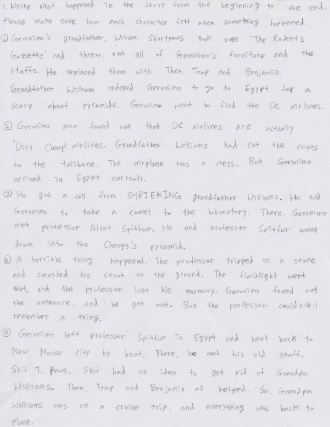 1. Write what happened in the story from the beginning to the end.
Please make sure how each character felt when something happened.
① Geronimo's grandfather, William Shortpaws took over 'The Rodent's
Gazette' and threw out all of Geronimo's furniture and the
staffs. He replaced them with Thea, Trap and Benjamin.
Grandfather William ordered Geronimo to go to Egypt for a
scoop about pyramids. Geronimo went to find the DC airlines.
② Geronimo soon found out that DC airlines are actually
'Dirt Cheap' airlines. Grandfather Williams had cut the costs
to the tailbone. The airplane was a mess. But Geronimo
arrived in Egypt
③ He got a call from SHRIEKING grandfather Williams. He told
Geronimo to take a camel to the laboratory. There, Geronimo
met professor Spitfur. He and professor Spitfur went
down into the Cheops's pyramid.
④ A terrible thing happened. The professor tripped on a stone
and smashed his snout at the ground. The flashlight went
out, and the professor lost his memory. Geronimo found out
the entrance, and he got out. But the professor couldn't
remember a thing.
⑤ Geronimo left professor Spitfur in Egypt and went back to
New Mouse city by boat. There, he met his old staff.
had an idea to get rid of Grandpa
Williams. Thea, Trap and Benjamin all helped. So, Grandpa
Williams was on a cruise trip, and everything was back to
place.